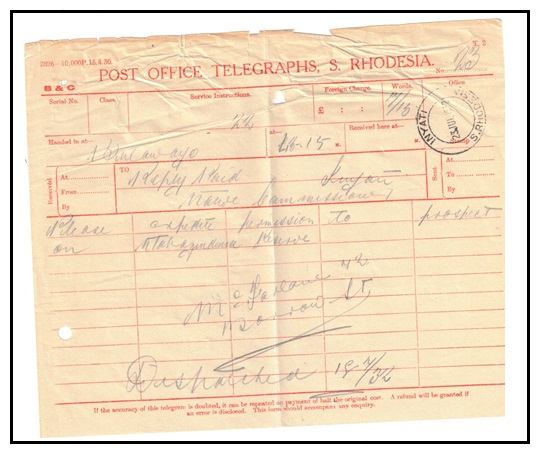 2026—10,000P.15.4.30 T. 2
POST OFFICE TELEGRAPHS, S. RHODESIA. No.
B & C
Serial No. Class. Service Instructions. Foreign Charge. Words. Office
£ : : 11/15
INYATI S. RHODESIA Stamp
Handed in at— at— Received here at—
Bulawayo 14-15
Received At From By TO Reply Paid Inyati Sent At To By
Native Commissioner
Please expedite permission to prospect
on Reserve
McFarlane
Despatched 19 7/32
If the accuracy of this telegram is doubted, it can be repeated on payment of half the original cost. A refund will be granted if
an error is disclosed. This form should accompany any enquiry.